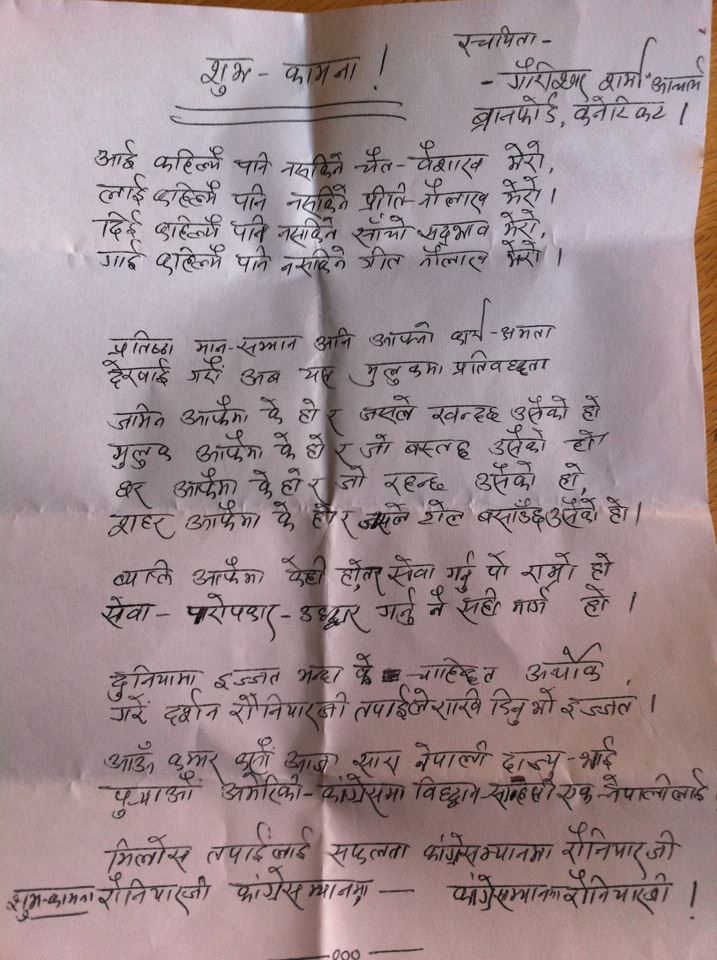 शुभ - कामना !
रचयिता -
- गौरिश्वर शर्मा आचार्य
ब्रानफोर्ड, कनेटिकट ।
आई कहिल्यै पनि नसकिने चैत - वैशाख मेरो,
लाई कहिल्यै पनि नसकिने प्रीति नौलाख मेरो ।
दिई कहिल्यै पनि नसकिने साँचो सद्भाव मेरो,
गाई कहिल्यै पनि नसकिने गीत नौलाख मेरो ।
प्रतिष्ठा मान-सम्मान अनि आफ्नो कार्य-क्षमता
देखाई गरौं अब यस मुलुकमा प्रतिवद्धता
जमिन आफैमा के हो र जसले खन्दछ उसैको हो
मुलुक आफैमा के हो र जो बस्तछ उसैको हो
घर आफैमा के हो र जो रहन्छ उसैको हो,
शहर आफैमा के हो र जसले टोल बसाउँछ उसैको हो ।
व्यक्ति आफैमा केही होइन सेवा गर्नु पो राम्रो हो
सेवा - परोपकार - उद्धार गर्नु नै सही मार्ग हो ।
दुनियामा इज्जत भन्दा के चाहिन्छ अर्थोक
गरें दर्शन रौनियारजी तपाईले राखि दिनु भो इज्जत ।
आऊँ कमर कसौं आज सारा नेपाली दाज्यु-भाई
पुर्‍याऔं अमेरिकी-कांग्रेसमा विद्वान एक-नेपालीलाई
मिलोस तपाईंलाई सफलता कांग्रेसम्यानमा रौनियारजी
शुभ-कामना रौनियारजी कांग्रेसम्यानमा, — कांग्रेसम्यानमा रौनियारजी !
—000—